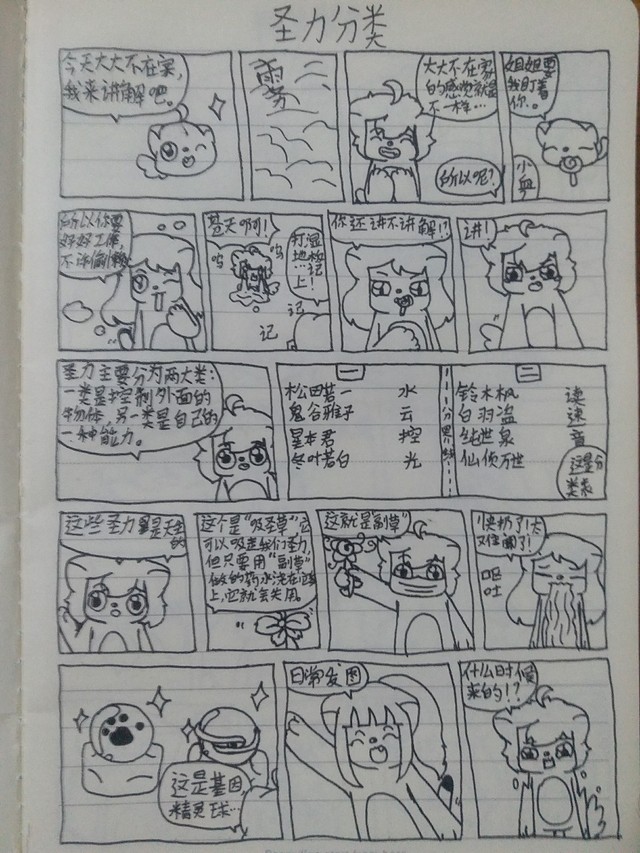 圣力分类
今天大大不在家,
我来讲解吧。
大大不在家
的感觉就是
不一样…
所以呢?
姐姐要
我盯着
你。
所以你要
好好工作,
不许偷懒
苍天啊!
呜
呜
打湿
地板
上!
记
记
你还讲不讲解!?
讲!
圣力主要分为两大类:
一类是控制外面的
物体,另一类是自己的
一种能力。
一
松田若一 水
鬼谷雅子 云
星本君 控
冬叶若白 光
分界线
二
铃木枫 读
白羽盗 速
纯世泉 音
仙侦万世
这是分
类表
这些圣力都是天生
的
这个是“吸圣草”它
可以吸走我们圣力
但只要用“副草”
做的药水浇在它
上,它就会失用。
这就是“副草”
快扔了!太
难闻了!
呕
吐
这是基因
精灵球…
日常发图
什么时候
来的!?